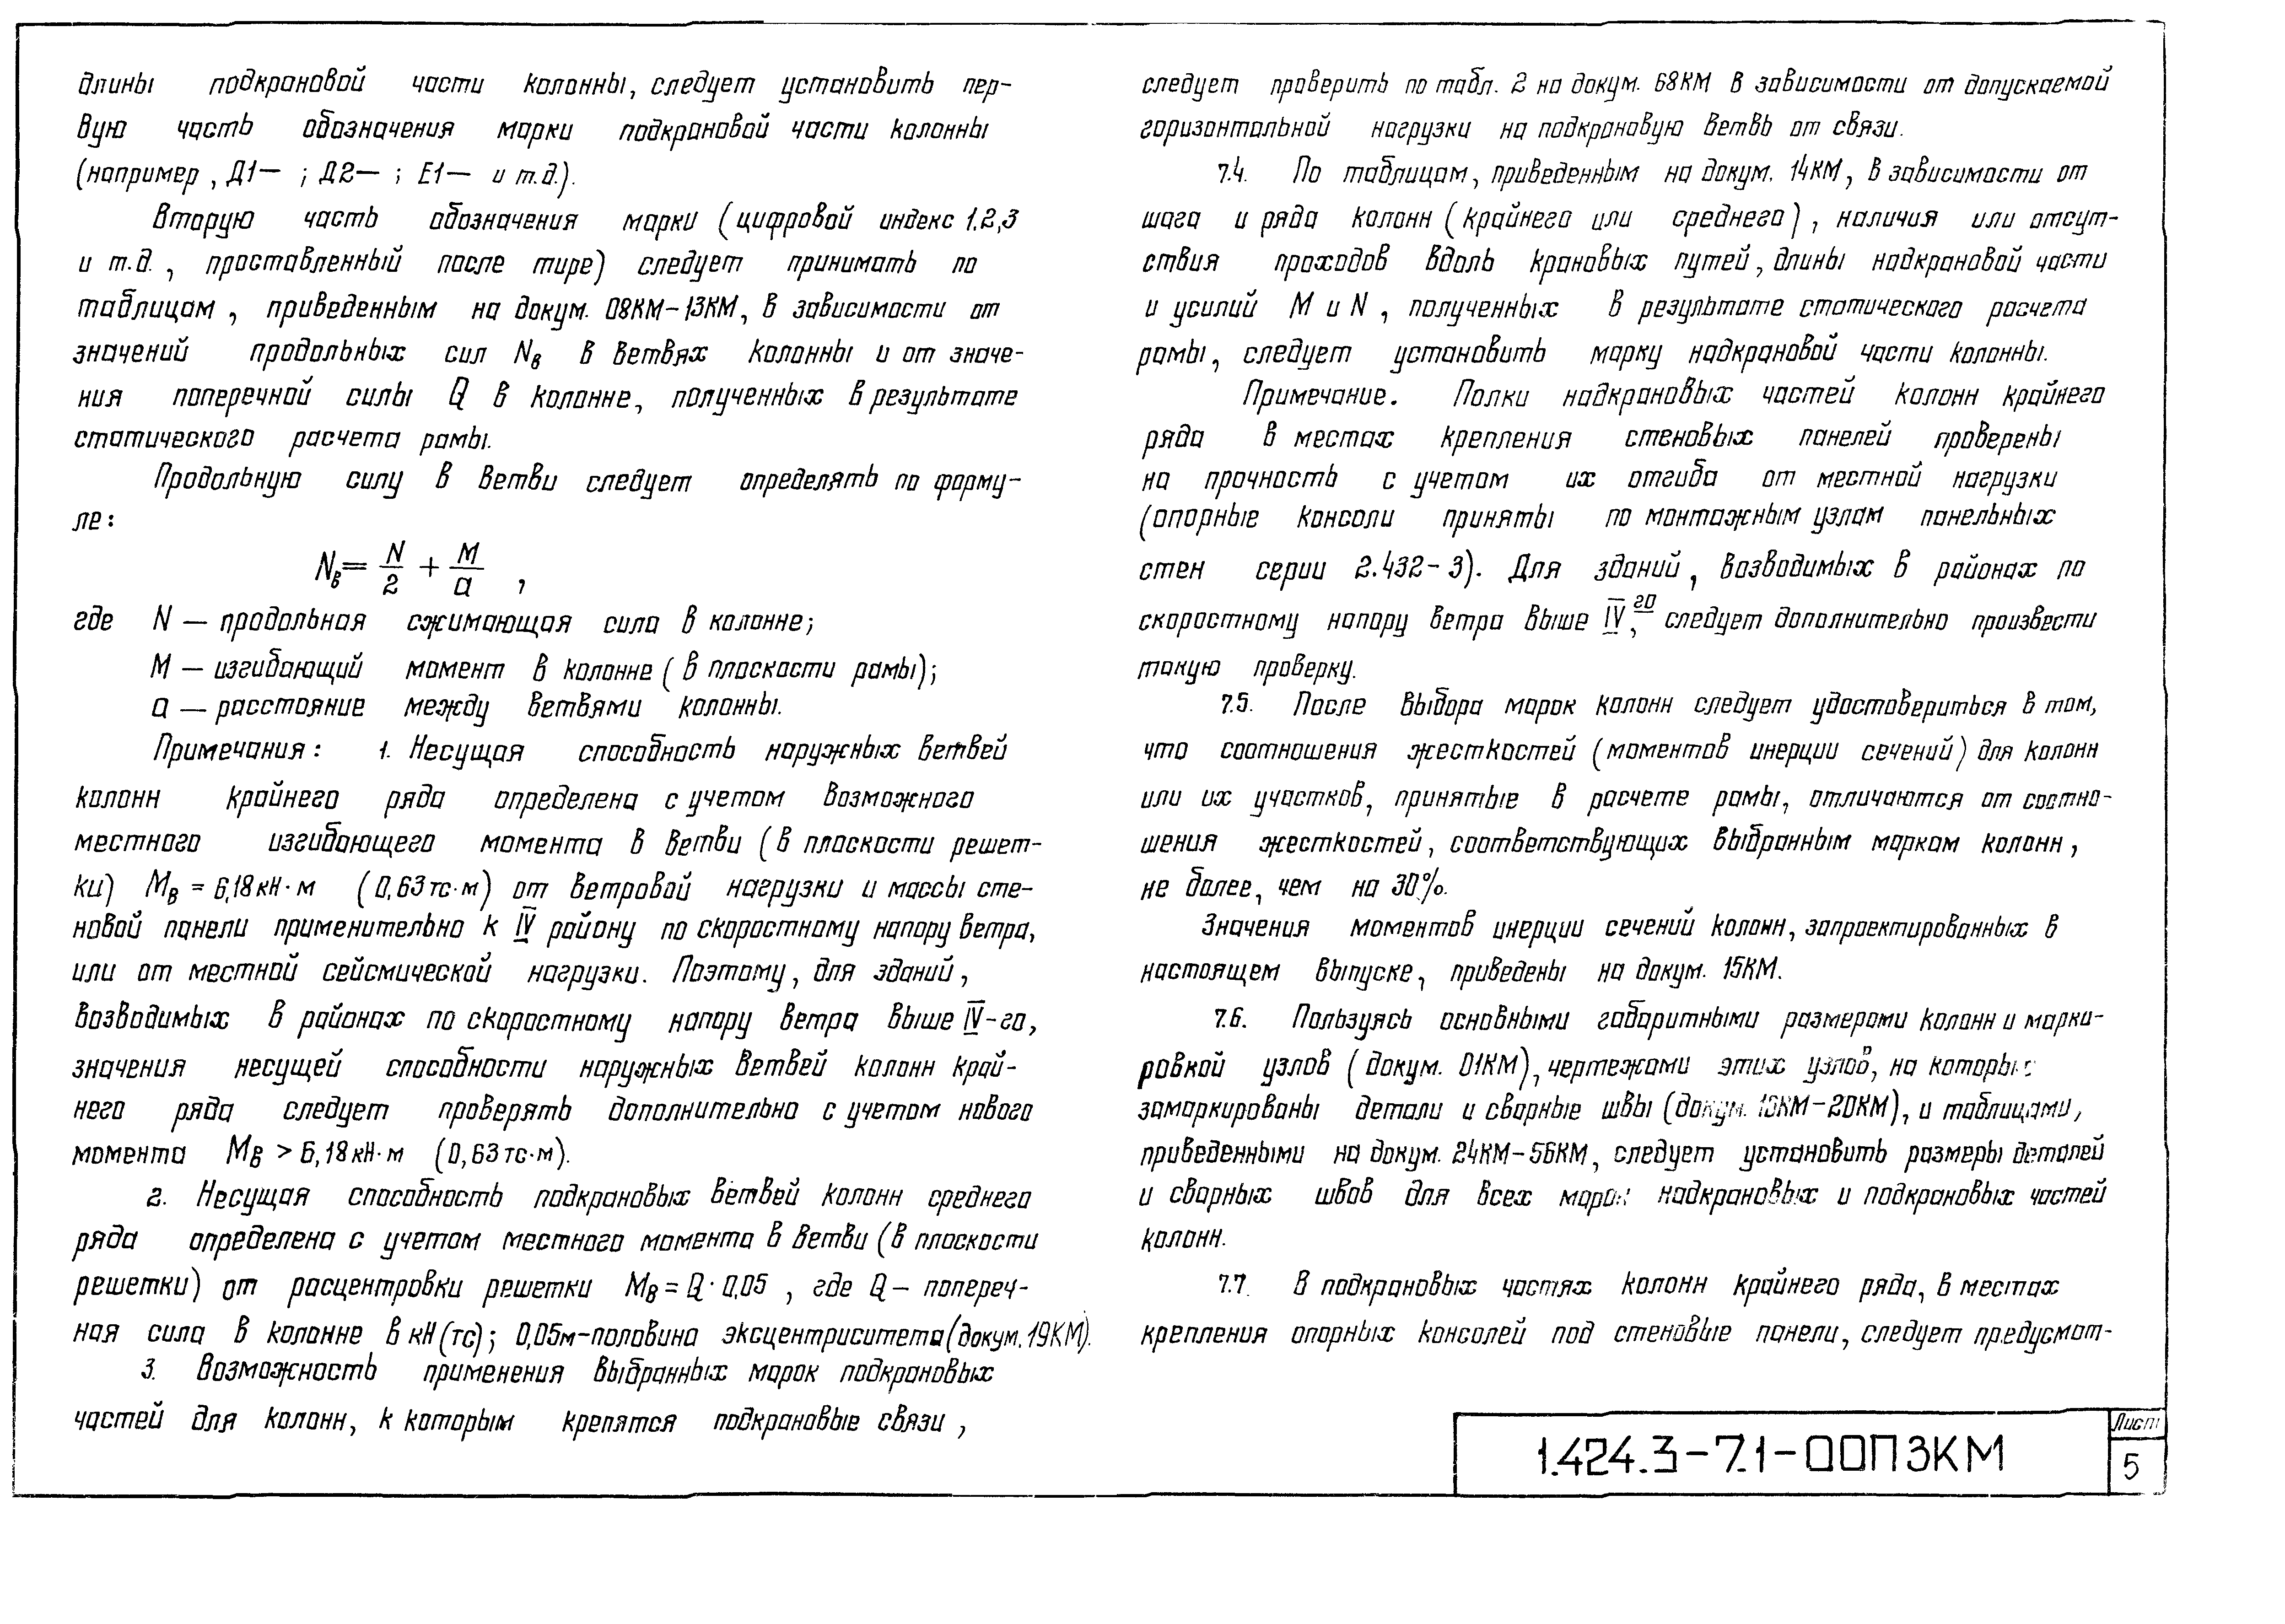 длины подкрановой части колонны, следует установить пер-
вую часть обозначения марки подкрановой части колонны
(например, Д1— ; Д2— ; Е1— и т.д.).
Вторую часть обозначения марки (цифровой индекс 1,2,3
и т.д., проставленный после тире) следует принимать по
таблицам, приведенным на докум. 08КМ-13КМ, в зависимости от
значений продольных сил Nв в ветвях колонны и от значе-
ния поперечной силы Q в колонне, полученных в результате
статического расчета рамы.
Продольную силу в ветви следует определять по форму-
ле:
Nв = N/2 + M/a ,
где N — продольная сжимающая сила в колонне;
M — изгибающий момент в колонне (в плоскости рамы);
a — расстояние между ветвями колонны.
Примечания: 1. Несущая способность наружных ветвей
колонн крайнего ряда определена с учетом возможного
местного изгибающего момента в ветви (в плоскости решет-
ки) Mв = 6,18 кН·м (0,63 тс·м) от ветровой нагрузки и массы сте-
новой панели применительно к IV району по скоростному напору ветра,
или от местной сейсмической нагрузки. Поэтому, для зданий,
возводимых в районах по скоростному напору ветра выше IV-го,
значения несущей способности наружных ветвей колонн край-
него ряда следует проверять дополнительно с учетом нового
момента Mв > 6,18 кН·м (0,63 тс·м).
2. Несущая способность подкрановых ветвей колонн среднего
ряда определена с учетом местного момента в ветви (в плоскости
решетки) от расцентровки решетки Mв = Q · 0,05 , где Q — попереч-
ная сила в колонне в кН (тс); 0,05м-половина эксцентриситета (докум. 19КМ).
3. Возможность применения выбранных марок подкрановых
частей для колонн, к которым крепятся подкрановые связи,
следует проверить по табл. 2 на докум. 68КМ в зависимости от допускаемой
горизонтальной нагрузки на подкрановую ветвь от связи.
7.4. По таблицам, приведенным на докум. 14КМ, в зависимости от
шага и ряда колонн (крайнего или среднего), наличия или отсут-
ствия проходов вдоль крановых путей, длины надкрановой части
и усилий M и N, полученных в результате статического расчета
рамы, следует установить марку надкрановой части колонны.
Примечание. Полки надкрановых частей колонн крайнего
ряда в местах крепления стеновых панелей проверены
на прочность с учетом их отгиба от местной нагрузки
(опорные консоли приняты по монтажным узлам панельных
стен серии 2.432-3). Для зданий, возводимых в районах по
скоростному напору ветра выше IV го, следует дополнительно произвести
такую проверку.
7.5. После выбора марок колонн следует удостовериться в том,
что соотношения жесткостей (моментов инерции сечений) для колонн
или их участков, принятые в расчете рамы, отличаются от соотно-
шения жесткостей, соответствующих выбранным маркам колонн,
не более, чем на 30%.
Значения моментов инерции сечений колонн, запроектированных в
настоящем выпуске, приведены на докум. 15КМ.
7.6. Пользуясь основными габаритными размерами колонн и марки-
ровкой узлов (докум. 01КМ), чертежами этих узлов, на которых
замаркированы детали и сварные швы (докум. 16КМ-20КМ), и таблицами,
приведенными на докум. 24КМ-56КМ, следует установить размеры деталей
и сварных швов для всех марок надкрановых и подкрановых частей
колонн.
7.7. В подкрановых частях колонн крайнего ряда, в местах
крепления опорных консолей под стеновые панели, следует предусмат-
1.424.3-7.1-00ПЗКМ
Лист
5